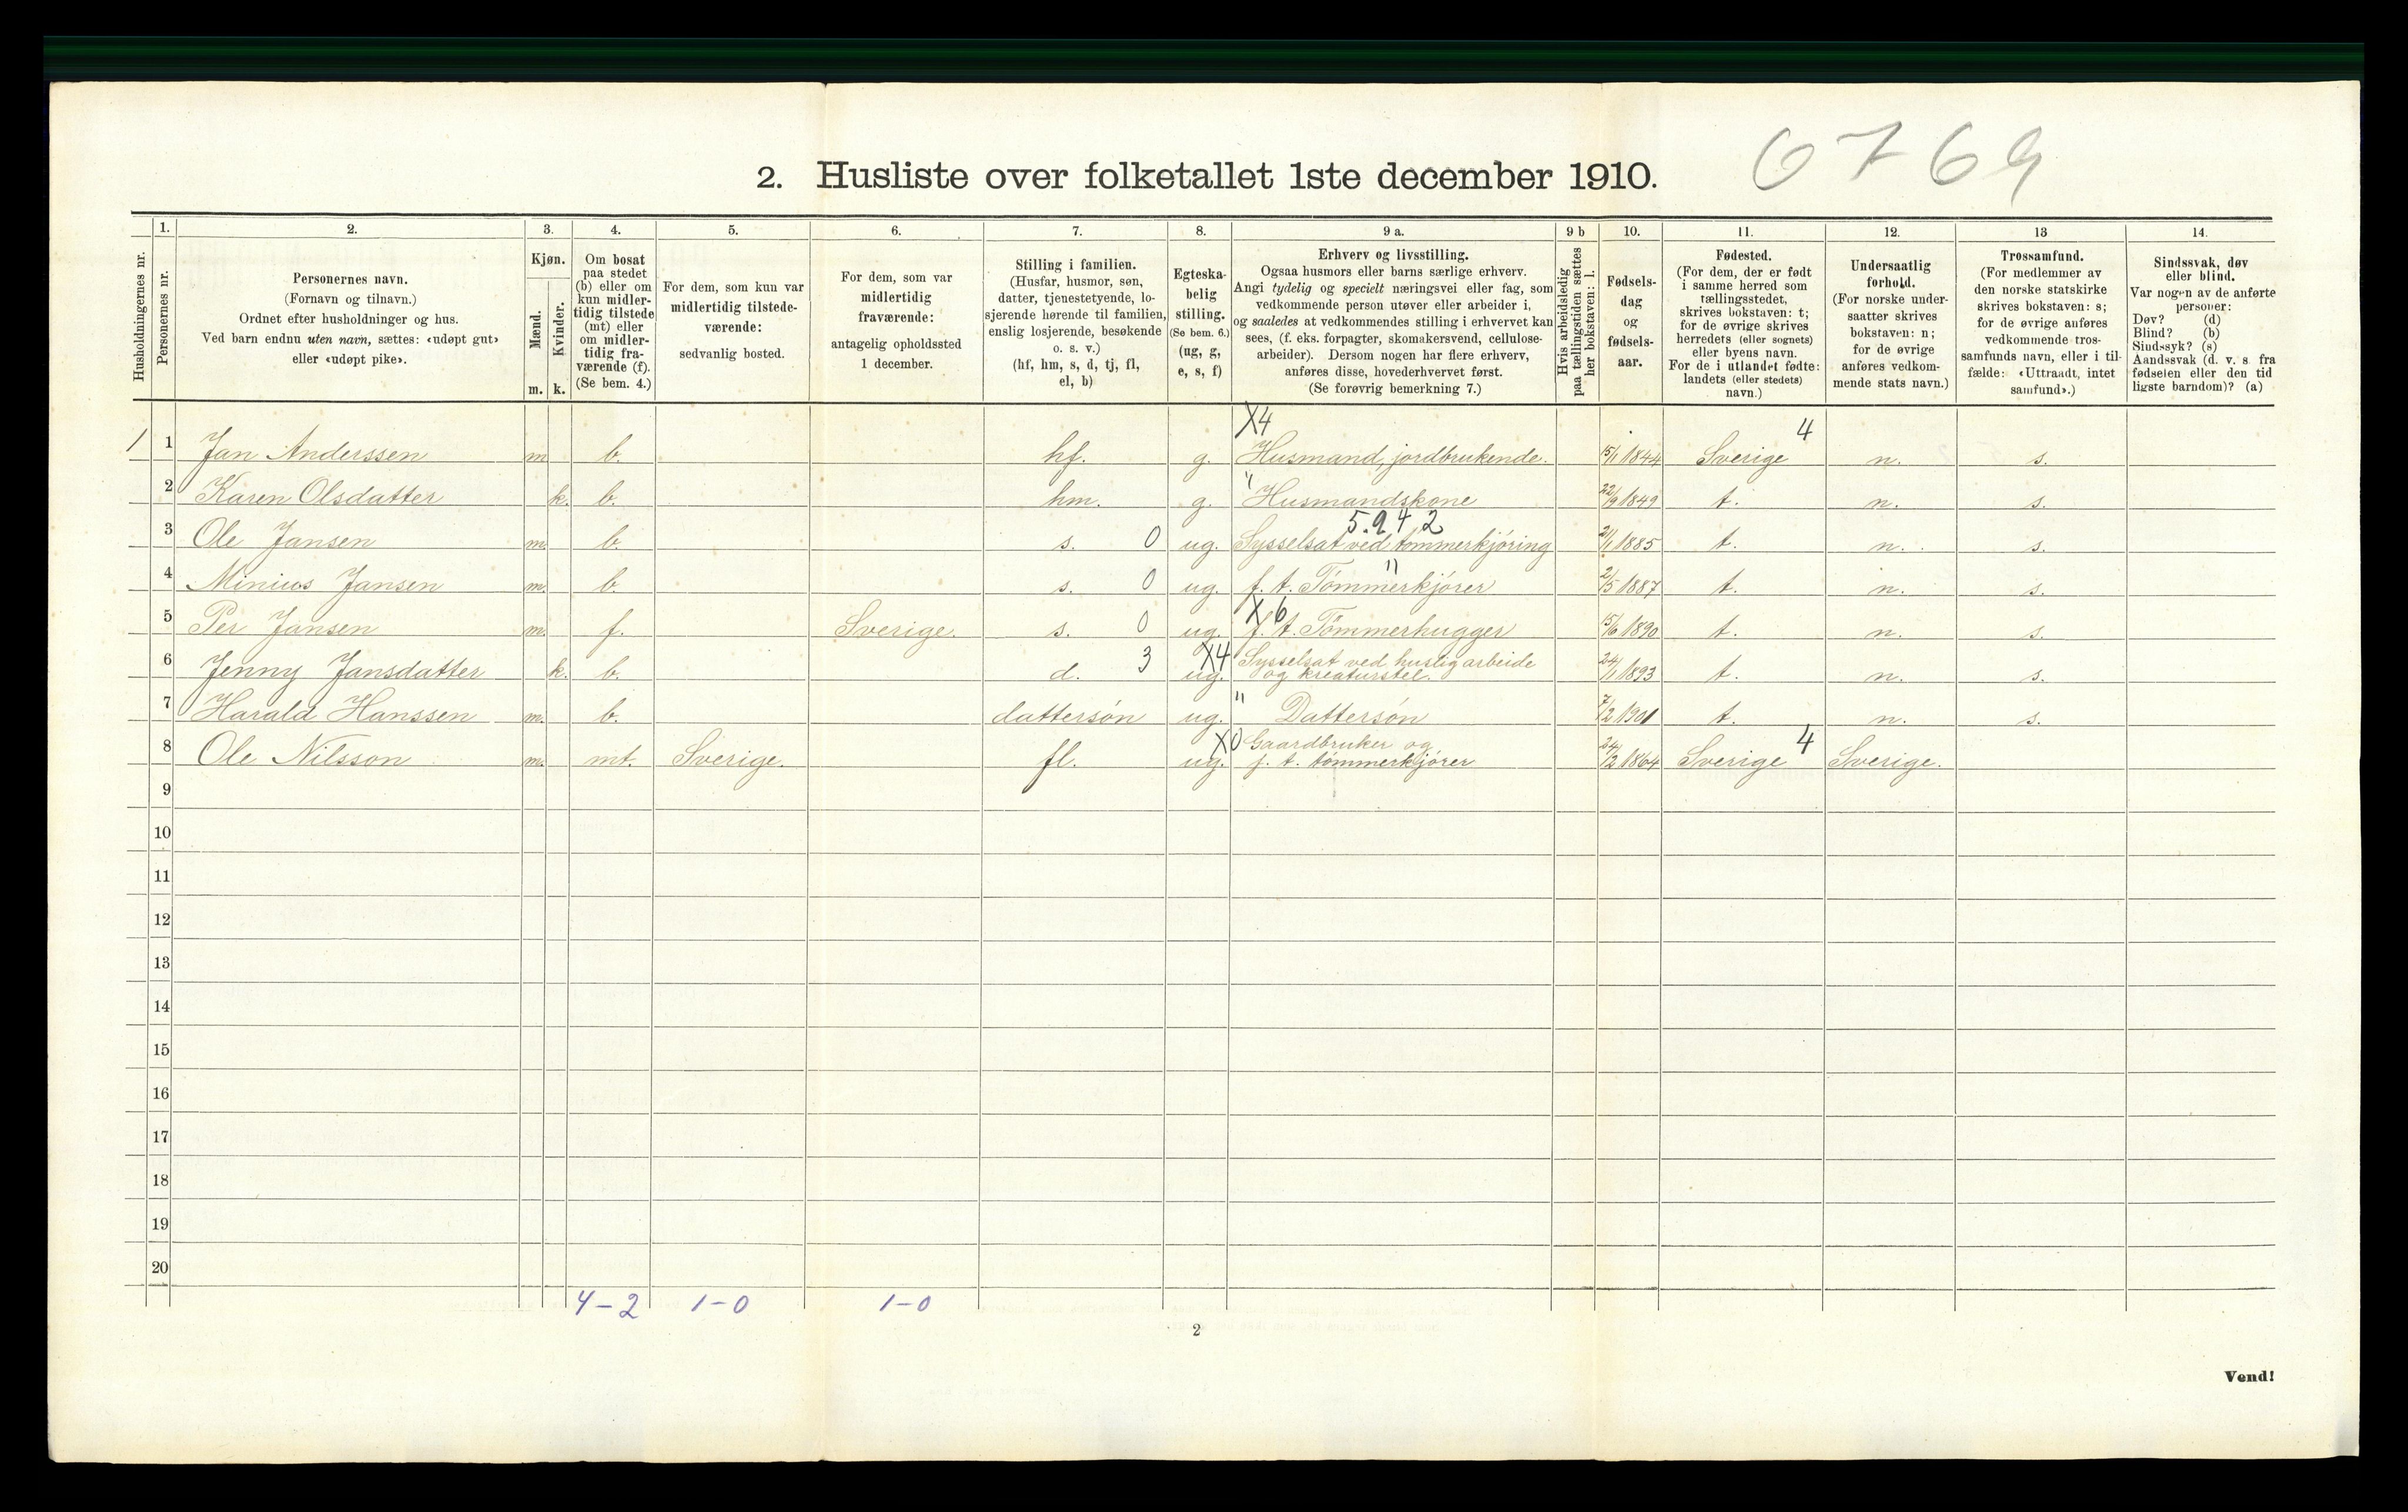 2. Husliste over folketallet 1ste december 1910.
0769
Husholdningernes nr.
1. Personernes nr.
2. Personernes navn.
(Fornavn og tilnavn.)
Ordnet efter husholdninger og hus.
Ved barn endnu uten navn, sættes: «udøpt gut»
eller «udøpt pike».
3. Kjøn.
Mænd. m.
Kvinder. k.
4. Om bosat
paa stedet
(b) eller om
kun midler-
tidig tilstede
(mt) eller
om midler-
tidig fra-
værende (f).
(Se bem. 4.)
5. For dem, som kun var
midlertidig tilstede-
værende:
sedvanlig bosted.
6. For dem, som var
midlertidig
fraværende:
antagelig opholdssted
1 december.
7. Stilling i familien.
(Husfar, husmor, søn,
datter, tjenestetyende, lo-
sjerende hørende til familien,
enslig losjerende, besøkende
o. s. v.)
(hf, hm, s, d, tj, fl,
el, b)
8. Egteska-
belig
stilling.
(Se bem. 6.)
(ug, g,
e, s, f)
9 a. Erhverv og livsstilling.
Ogsaa husmors eller barns særlige erhverv.
Angi tydelig og specielt næringsvei eller fag, som
vedkommende person utøver eller arbeider i,
og saaledes at vedkommendes stilling i erhvervet kan
sees, (f. eks. forpagter, skomakersvend, cellulose-
arbeider). Dersom nogen har flere erhverv,
anføres disse, hovederhvervet først.
(Se forøvrig bemerkning 7.)
9 b Hvis arbeidsledig
paa tællingstiden sættes
her bokstaven: l.
10. Fødsels-
dag
og
fødsels-
aar.
11. Fødested.
(For dem, der er født
i samme herred som
tællingsstedet,
skrives bokstaven: t;
for de øvrige skrives
herredets (eller sognets)
eller byens navn.
For de i utlandet fødte:
landets (eller stedets)
navn.)
12. Undersaatlig
forhold.
(For norske under-
saatter skrives
bokstaven: n;
for de øvrige
anføres vedkom-
mende stats navn.)
13 Trossamfund.
(For medlemmer av
den norske statskirke
skrives bokstaven: s;
for de øvrige anføres
vedkommende tros-
samfunds navn, eller i til-
fælde: «Uttraadt, intet
samfund».)
14. Sindssvak, døv
eller blind.
Var nogen av de anførte
personer:
Døv? (d)
Blind? (b)
Sindssyk? (s)
Aandssvak (d. v. s. fra
fødselen eller den tid
ligste barndom)? (a)
X4 4
1 1 Jan Anderssen m b. hf. g. Husmand, jordbrukende. 15/1 1844 Sverige n. s.
2 Karen Olsdatter k. b. hm. g. " Husmandskone 22/9 1849 t. n. s.
5.942
3 Ole Jansen m. b. s. 0 ug. Sysselsat ved tømmerkjøring 21/1 1885 t. n. s.
"
4 Minius Jansen m. b. s. 0 ug. f. t. Tømmerkjører 2/5 1887 t. n. s.
X6
5 Per Jansen m. f. Sverige. s. 0 ug. f. t. Tømmerhugger 15/6 1890 t. n. s.
6 Jenny Jansdatter k. b. d. 3 ug. X4 Sysselsat ved huslig arbeide
og kreaturstel. 24/11 1893 t. n. s.
7 Harald Hanssen m. b. dattersøn ug. " Dattersøn 7/2 1901 t. n. s.
8 Ole Nilsson m. mt. Sverige. fl. ug. X0 Gaardbruker og
f. t. tømmerkjører 24/2 1864 Sverige 4 Sverige.
9
10
11
12
13
14
15
16
17
18
19
20
4-2 1-0 1-0
2
Vend!